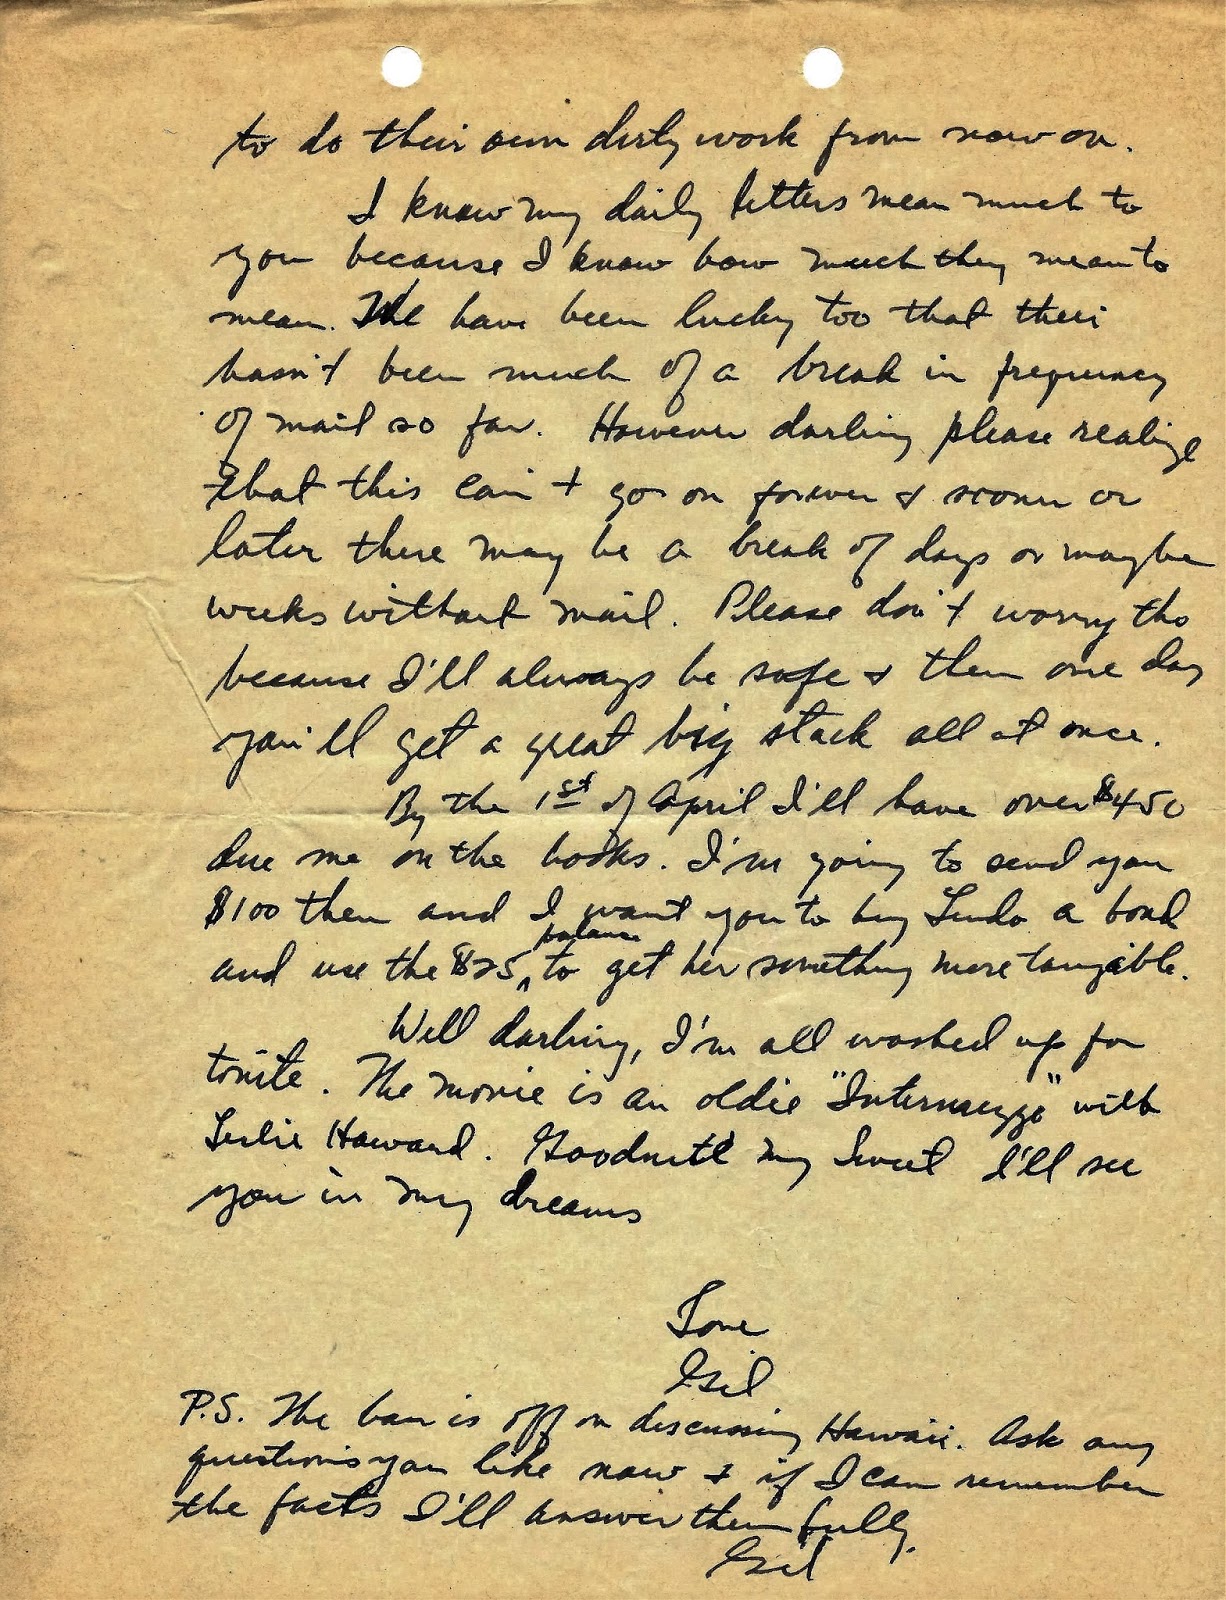 to do their own dirty work from now on.
I know my daily letters mean much to
you because I know how much they mean to
mean. We have been lucky too that their
hasn't been much of a break in frequency
of mail so far. However darling please realize
that this can't go on forever & sooner or
later there may be a break of days or maybe
weeks without mail. Please don't worry tho
because I'll always be safe & then one day
you'll get a great big stack all at once.
By the 1st of April I'll have over $450
due me on the books. I'm going to send you
$100 then and I want you to buy Linda a bond
and use the $25 balance to get her something more tangible.
Well darling, I'm all washed up for
tonite. The movie is an oldie "Intermezzo" with
Leslie Howard. Goodnite my Sweet I'll see
you in my dreams
Love
Gil
P.S. The ban is off on discussing Hawaii. Ask any
questions you like now & if I can remember
the facts I'll answer them fully.
Gil